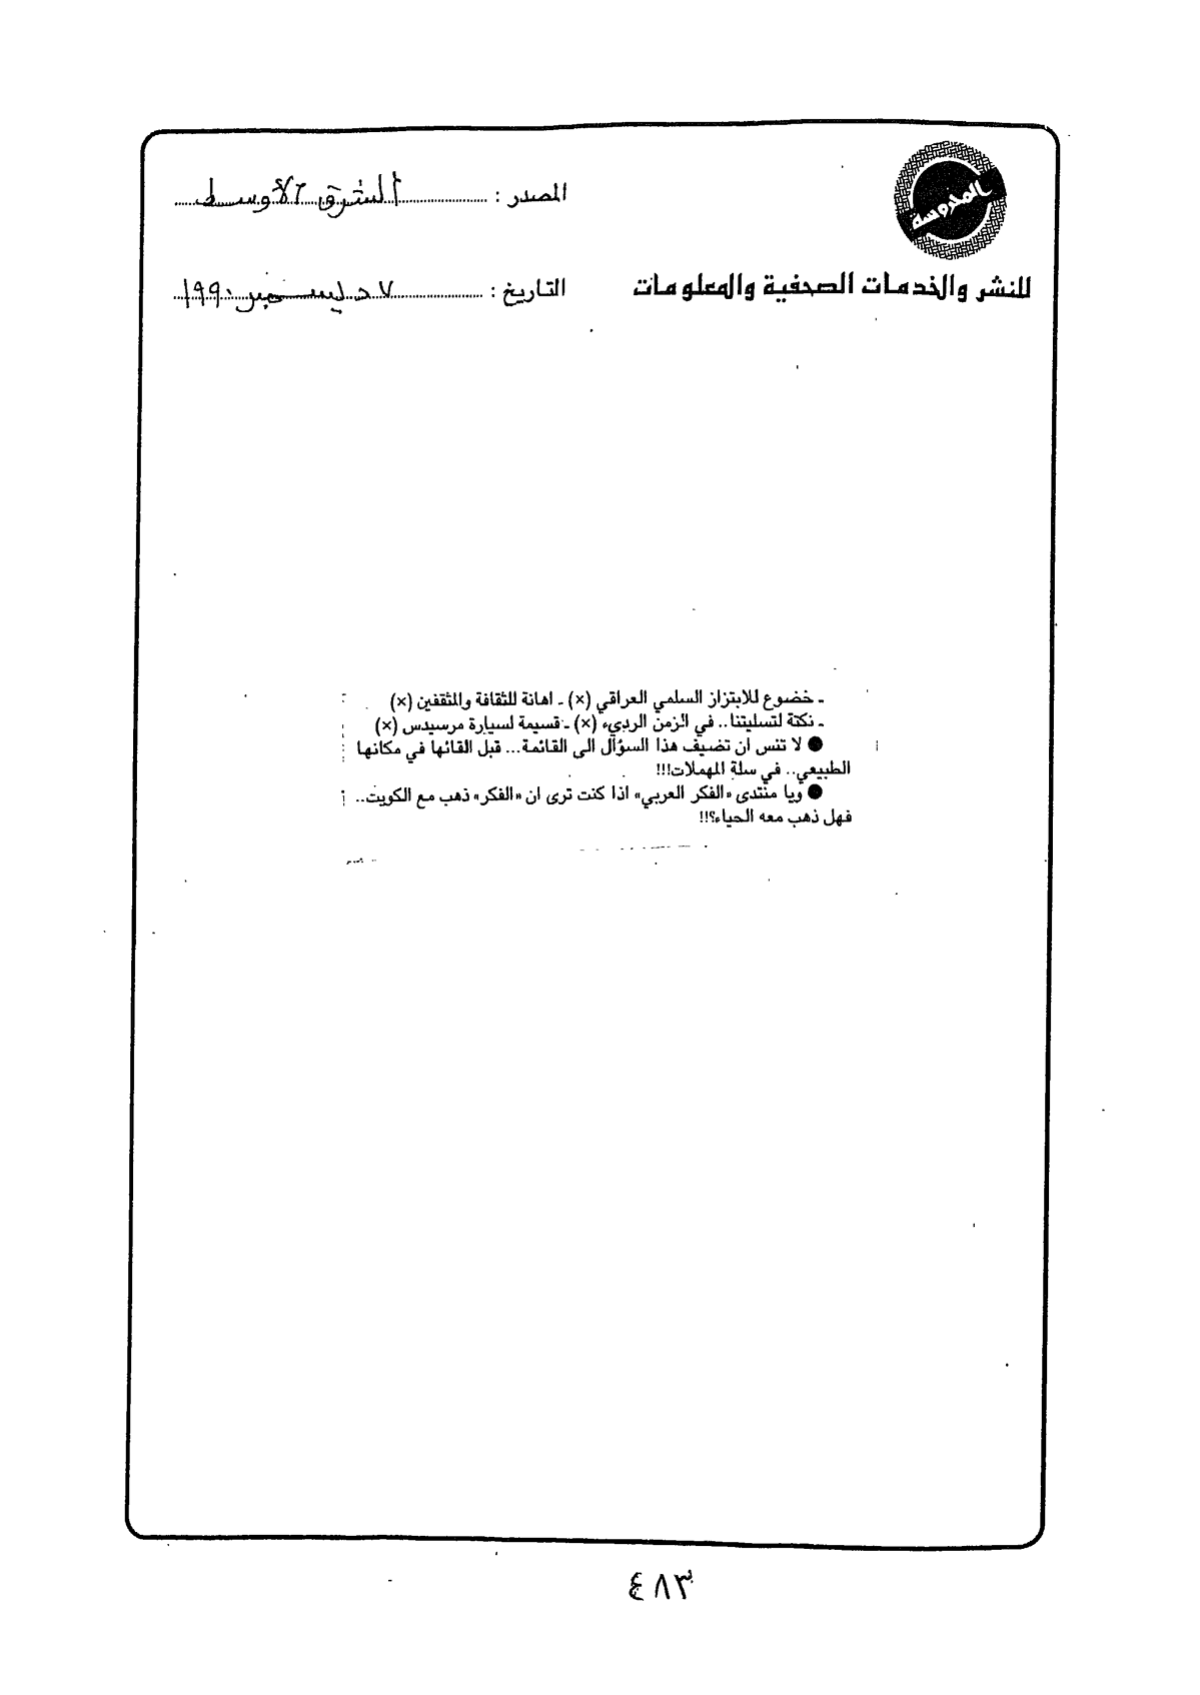 المحروسة
المصدر : الشرق الأوسط
للنشر والخدمات الصحفية والمعلومات
التاريخ : ٧ ديسمبر ١٩٩٠
ـ خضوع للابتزاز السلمي العراقي (×) ـ اهانة للثقافة والمثقفين (×)
ـ نكتة لتسليتنا.. في الزمن الرديء (×) ـ قسيمة لسيارة مرسيدس (×)
● لا تنس ان تضيف هذا السؤال الى القائمة... قبل القائها في مكانها
الطبيعي.. في سلة المهملات!!!
● ويا منتدى «الفكر العربي» اذا كنت ترى ان «الفكر» ذهب مع الكويت..
فهل ذهب معه الحياء؟!!
٤٨٣